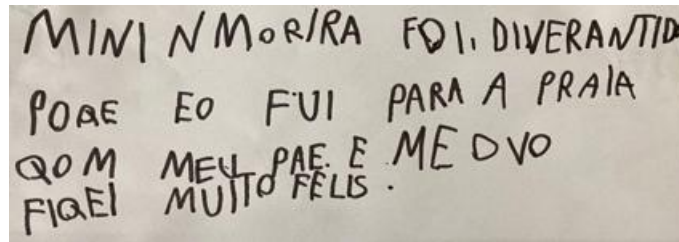 MINI NMORIRA FOI. DIVERANTID
POQE EO FUI PARA A PRAIA
QOM MEU PAE. E ME DVO
FIQEI MUITO FELIS.